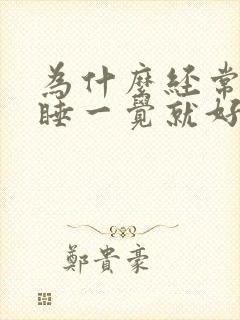 為什麼経常
睡一覺就好
鄭貴豪